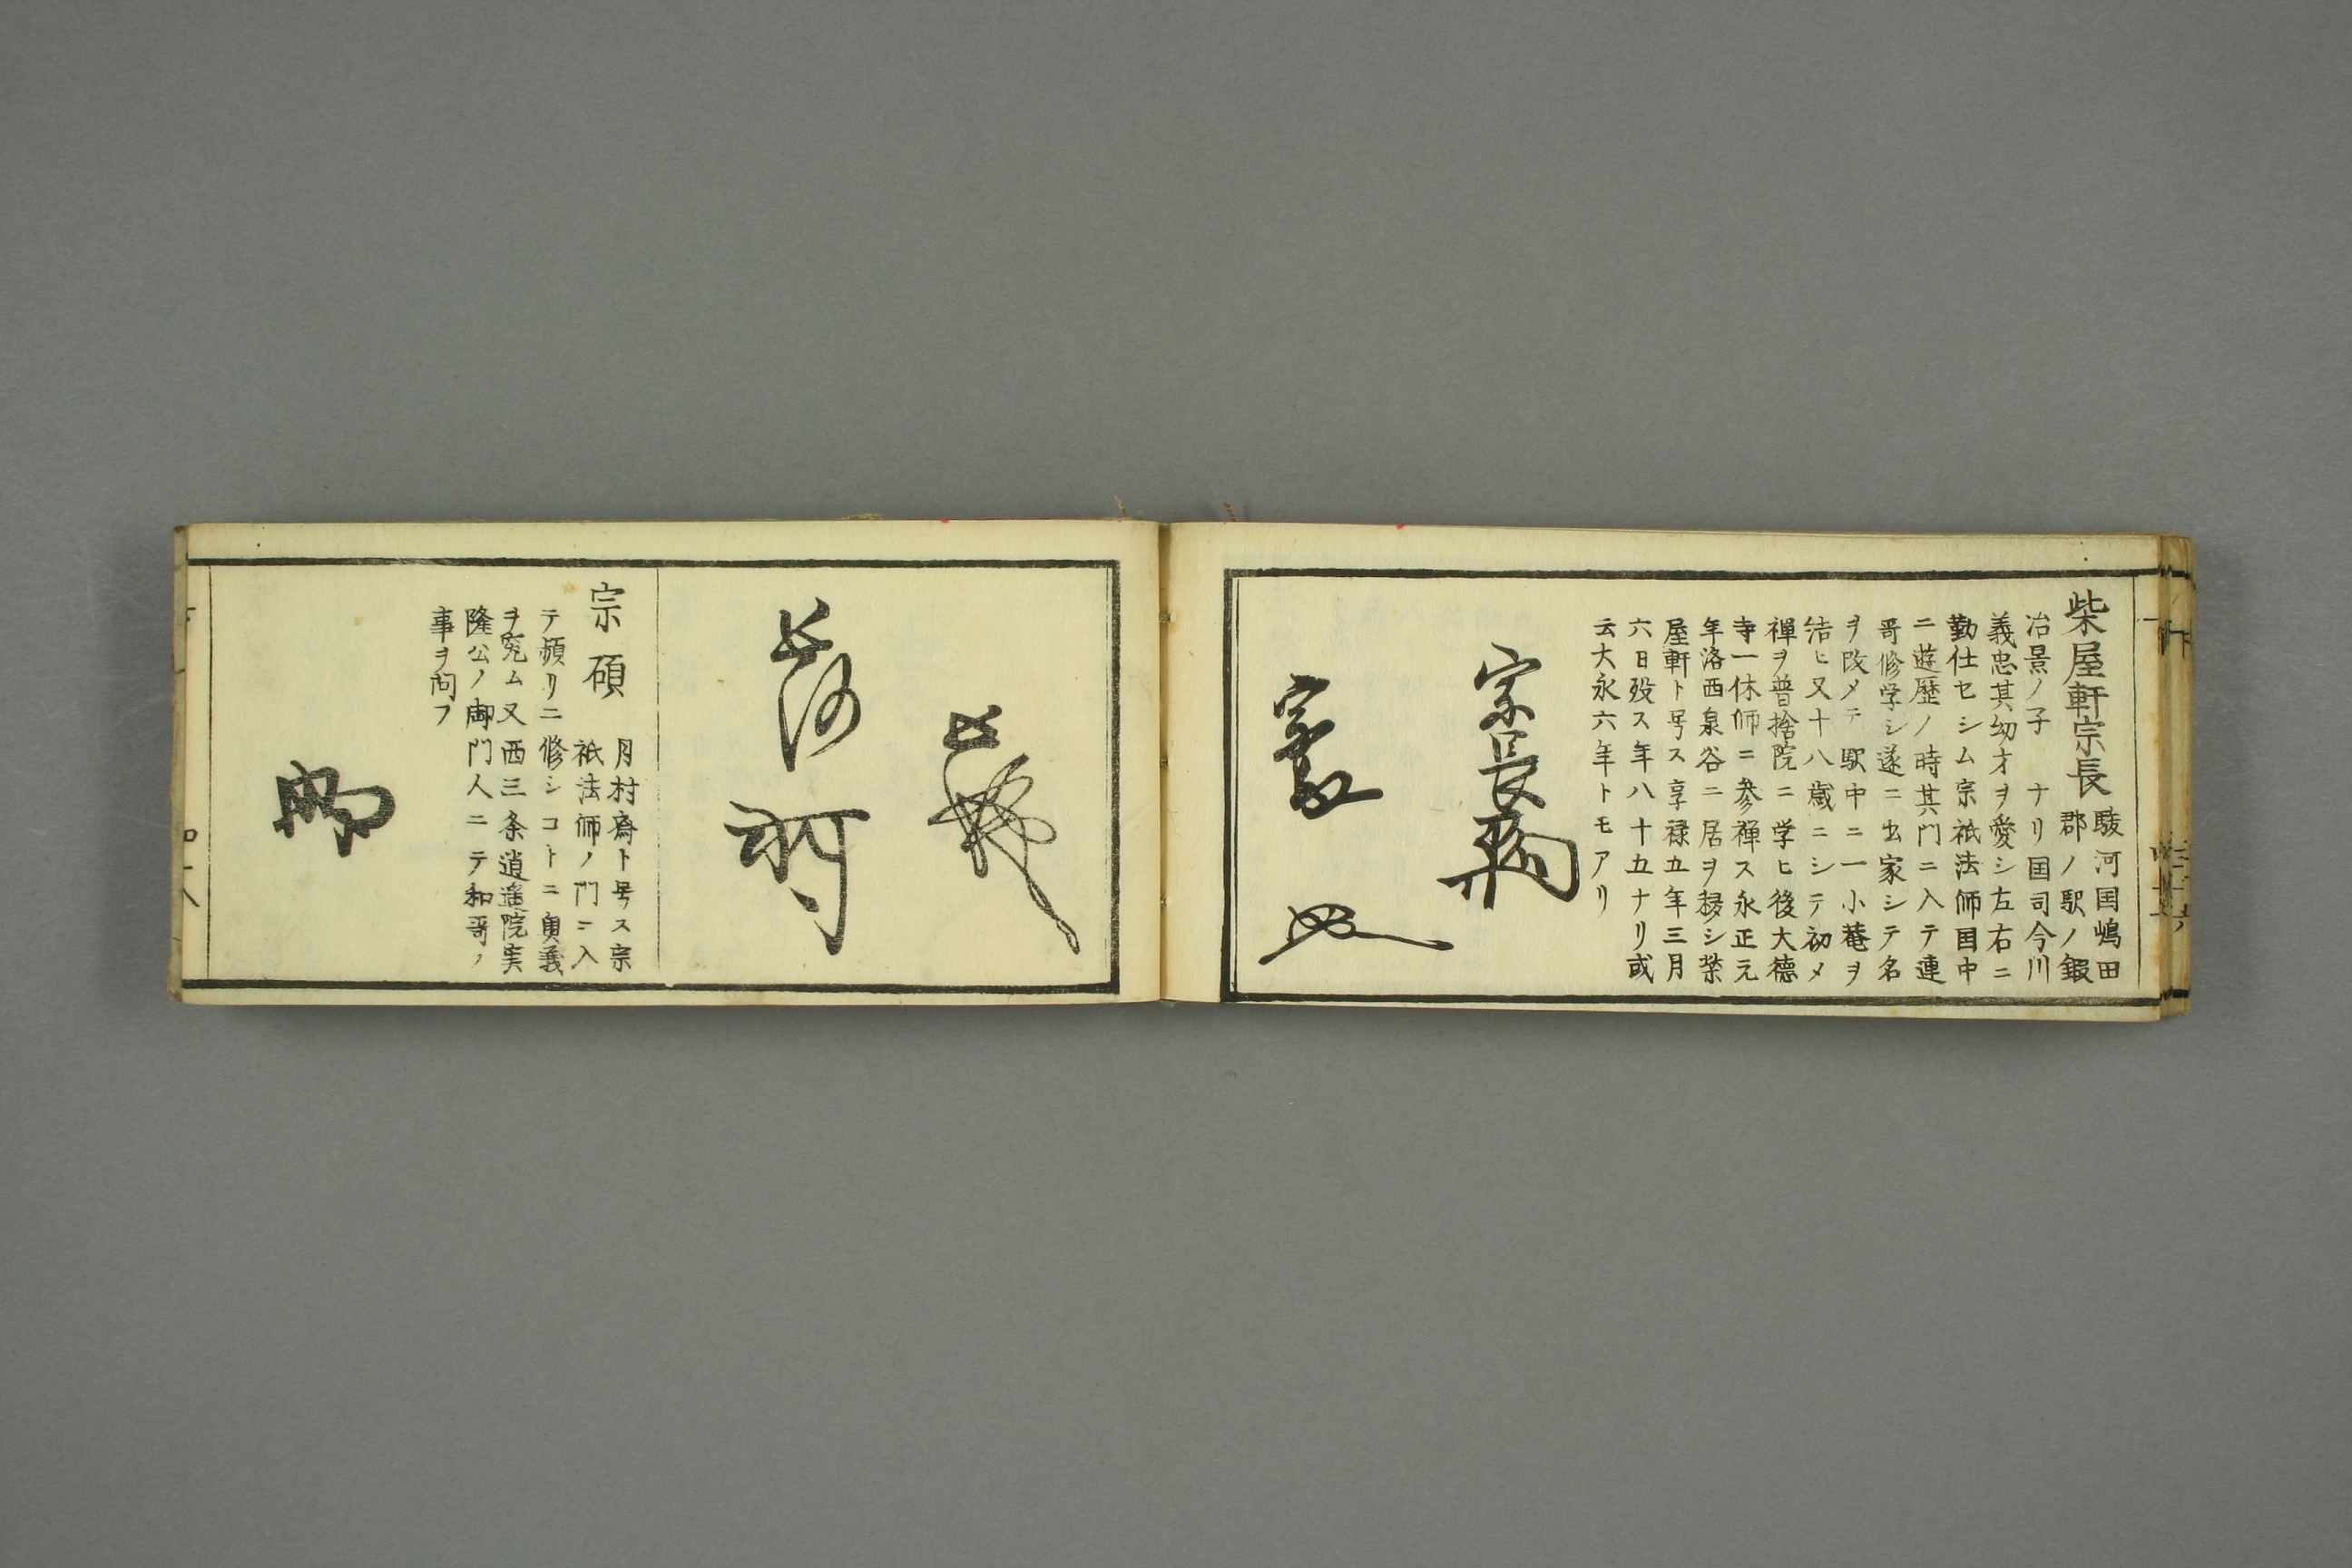 柴屋軒宗長
駿河国嶋田
郡ノ駅ノ鍛
冶景ノ子 ナリ国司今川
義忠其幼才ヲ愛シ左右ニ
勤仕セシム宗祇法師国中
ニ遊歴ノ時其門ニ入テ連
哥修学シ遂ニ出家シテ名
ヲ改メテ駅中ニ一小菴ヲ
結ヒ又十八歳ニシテ初メ
禅ヲ普捨院ニ学ヒ後大徳
寺一休師ニ参禅ス永正元
年洛西泉谷ニ居ヲ移シ柴
屋軒ト号ス享禄五年三月
六日歿ス年八十五ナリ或
云大永六年トモアリ
宗長
宗長
長
長阿
宗碩
月村斎ト号ス宗
祇法師ノ門ニ入
テ頻リニ修シコトニ奥義
ヲ究ム又西三条逍遥院実
隆公ノ御門人ニテ和哥ノ
事ヲ問フ